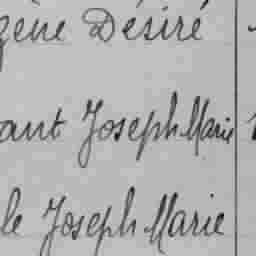 gène Désiré
ant Joseph Marie
le Joseph Marie